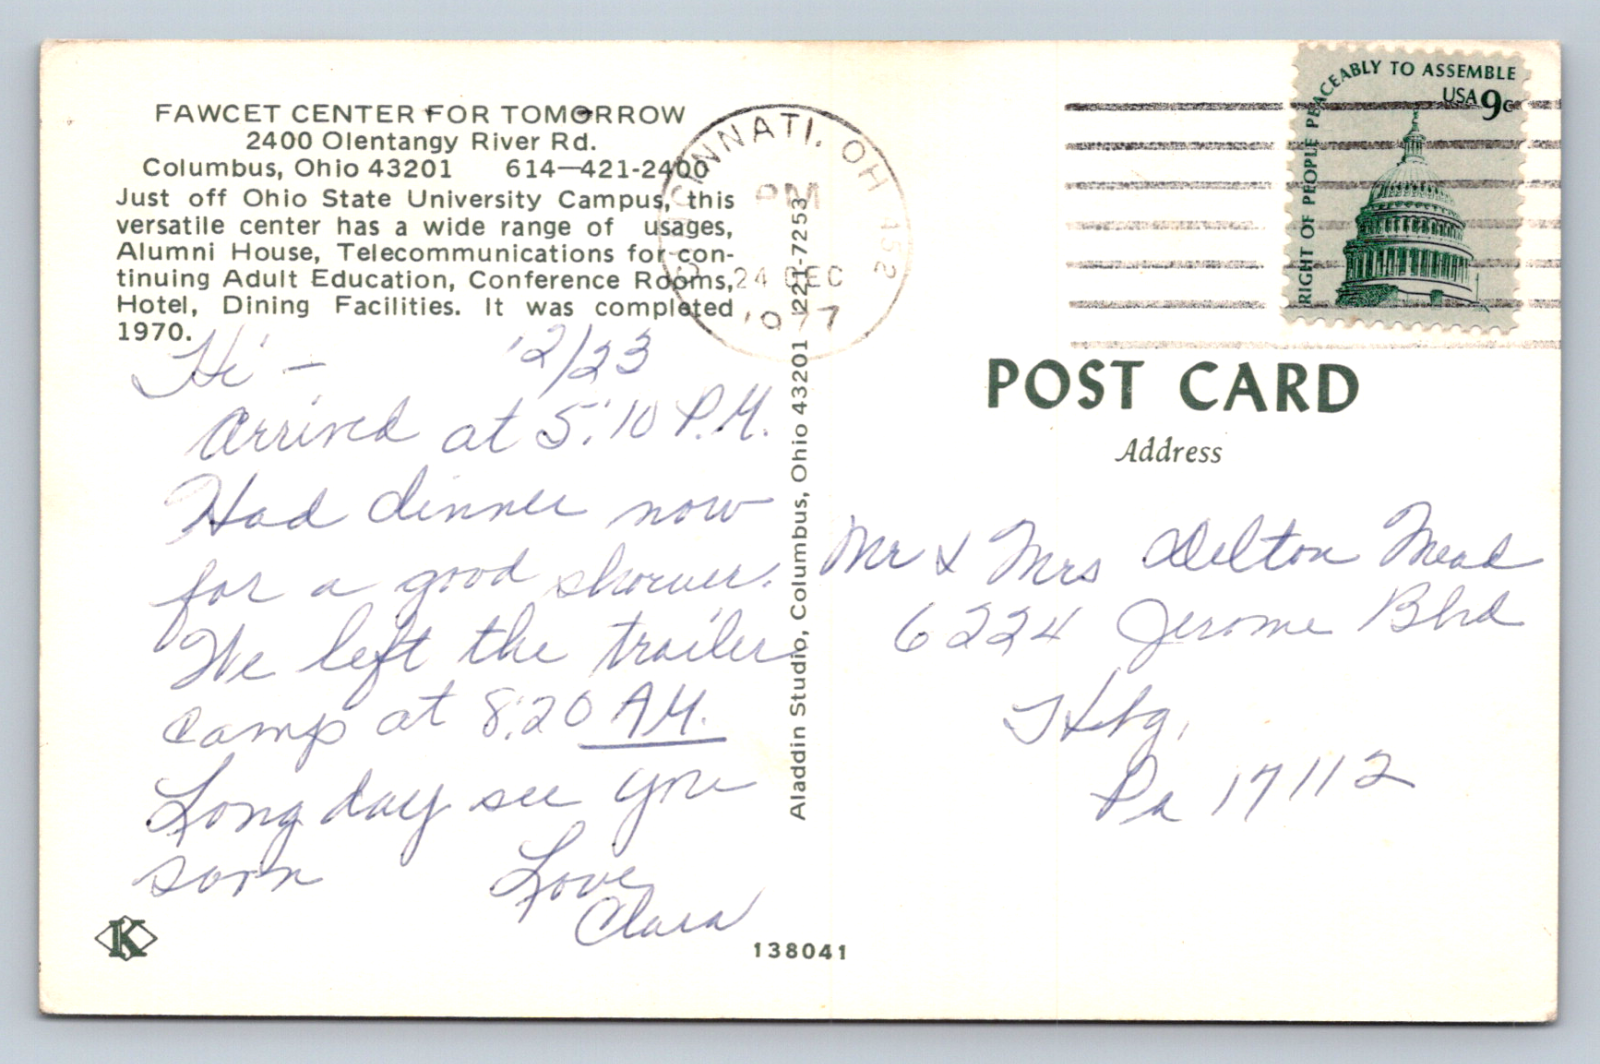 FAWCET CENTER FOR TOMORROW
2400 Olentangy River Rd.
Columbus, Ohio 43201 614—421-2400
Just off Ohio State University Campus, this
versatile center has a wide range of usages,
Alumni House, Telecommunications for con-
tinuing Adult Education, Conference Rooms,
Hotel, Dining Facilities. It was completed
1970.
Hi - 12/23
Arrived at 5:10 P.M.
Had dinner now
for a good shower.
We left the trailer
camp at 8:20 A.M.
Long day see you
soon Love,
Clara
K
138041
Aladdin Studio, Columbus, Ohio 43201 221-7253
CINCINNATI, OH 452
PM
24 DEC
1977
RIGHT OF PEOPLE PEACEABLY TO ASSEMBLE
USA 9c
POST CARD
Address
Mr & Mrs Delton Mead
6224 Jerome Blvd
Hbg,
Pa 17112